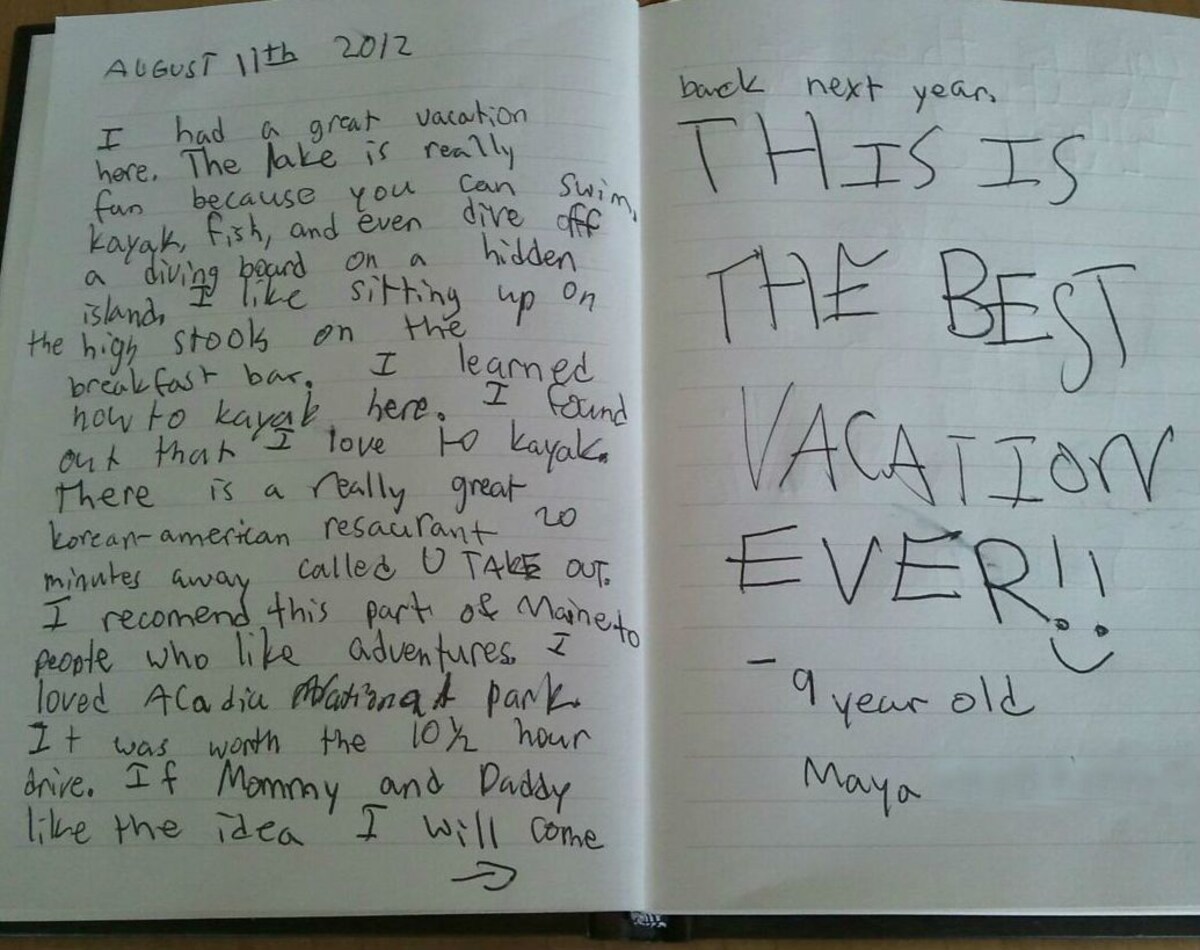 AUGUST 11th 2012
I had a great vacation
here. The lake is really
fun because you can swim,
kayak, fish, and even dive off
a diving board on a hidden
island. I like sitting up on
the high stools on the
breakfast bar. I learned
how to kayak here. I found
out that I love to kayak.
There is a really great
korean-american resaurant 20
minutes away called U TAKE OUT.
I recomend this part of Maine to
people who like adventures. I
loved Acadia National park.
It was worth the 10½ hour
drive. If Mommy and Daddy
like the idea I will come
→
back next year.
THIS IS
THE BEST
VACATION
EVER!!
- 9 year old
Maya